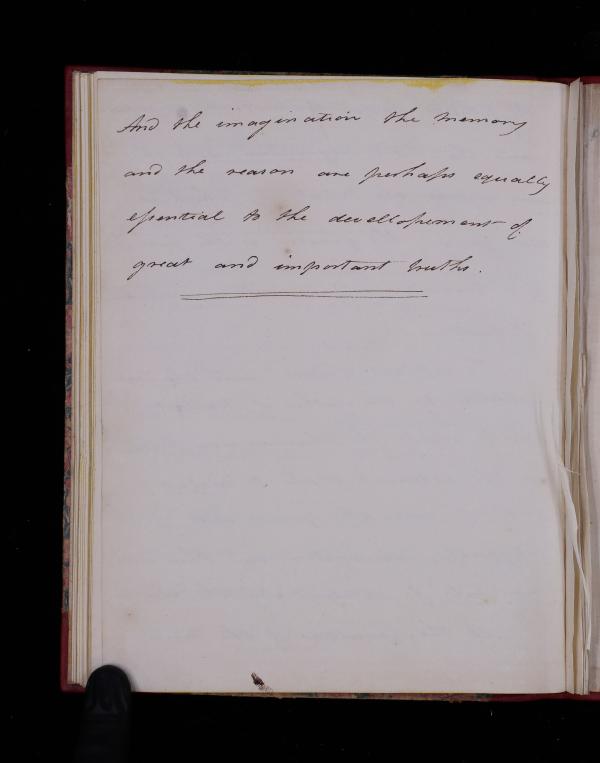 And the imagination the memory
and the reason are perhaps equally
eſsential to the devellopement of
great and important truths.